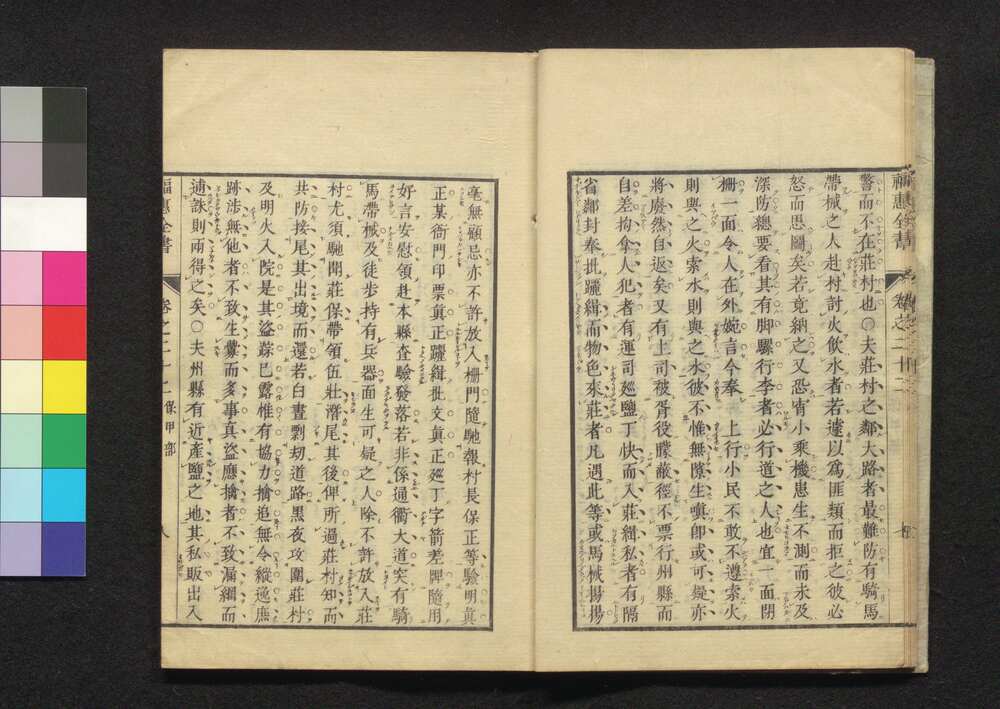 福惠全書 卷之二十二
警而不在莊村也○夫莊村之鄰大路者最難防有騎馬
帶械之人赴村討火飲水者若遽以爲匪類而拒之彼必
怒而思圖矣若竟納之又恐宵小乘機患生不測而未及
深防總要看其有脚騾行李者必行道之人也宜一面閉
柵一面令人在外婉言今奉 上行小民不敢不遵索火
則與之火索水則與之水彼不惟無隙生嗔卽或可疑亦
將廢然自返矣又有上司被胥役朦蔽徑不票行州縣而
自差拘拿人犯者有運司廵鹽丁快而入莊緝私者有隔
省鄰封奉批躧緝而物色來莊者凡遇此等或馬械揚揚
毫無顧忌亦不許放入柵門隨馳報村長保正等驗明眞
正某衙門印票眞正躧緝批文眞正廵丁字箭差牌隨用
好言安慰領赴本縣查驗發落若非係通衢大道突有騎
馬帶械及徒步持有兵器面生可疑之人除不許放入莊
村尤須馳聞莊保帶領伍壯潛尾其後俾所過莊村知而
共防接尾其出境而還若白晝剽刼道路黑夜攻圍莊村
及明火入院是其盜踪已露惟有協力擒追無令縱逸庶
跡涉無他者不致生釁而多事真盜應擒者不致漏網而
逋誅則兩得之矣○夫州縣有近產鹽之地其私販出入
福惠全書 卷之二十二 保甲部 八